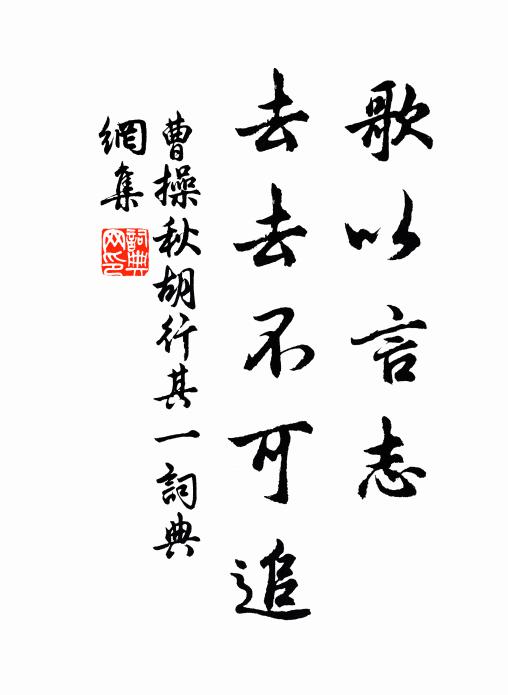 歌以言志
去去不可追
曹操秋胡行其一詞典
網集
詞典網印